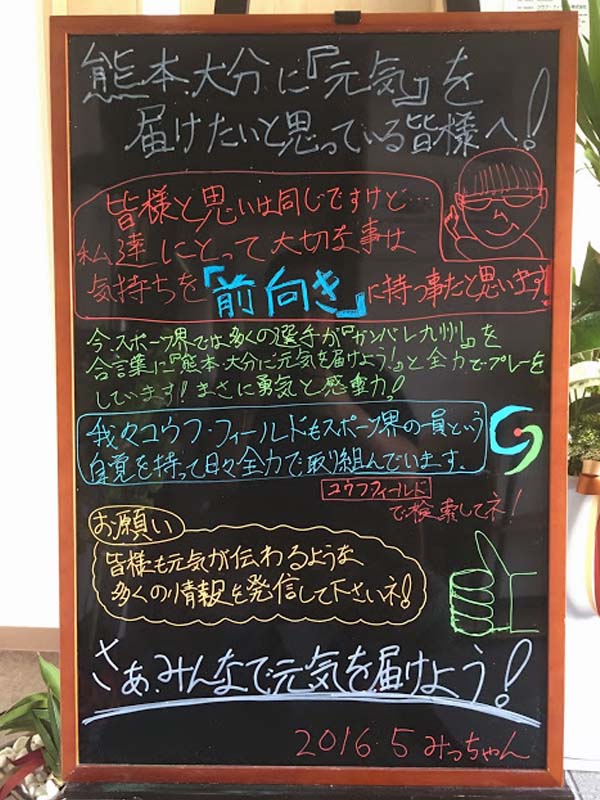 熊本、大分に『元気』を
届けたいと思っている皆様へ!
皆様と思いは同じですけど…
私達にとって大切な事は
気持ちを「前向き」に持つ事だと思います!
今、スポーツ界では多くの選手が『ガンバレ九州』を
合言葉に『熊本・大分に元気を届けよう!』と全力でプレーを
しています!まさに勇気と感動力!
我々コウフ・フィールドもスポーツ界の一員という
自覚を持って日々全力で取り組んでいます。
コウフフィールド
で検索してネ!
お願い
皆様も元気が伝わるような
多くの情報を発信して下さいネ!
さぁ、みんなで元気を届けよう!
2016.5 みっちゃん